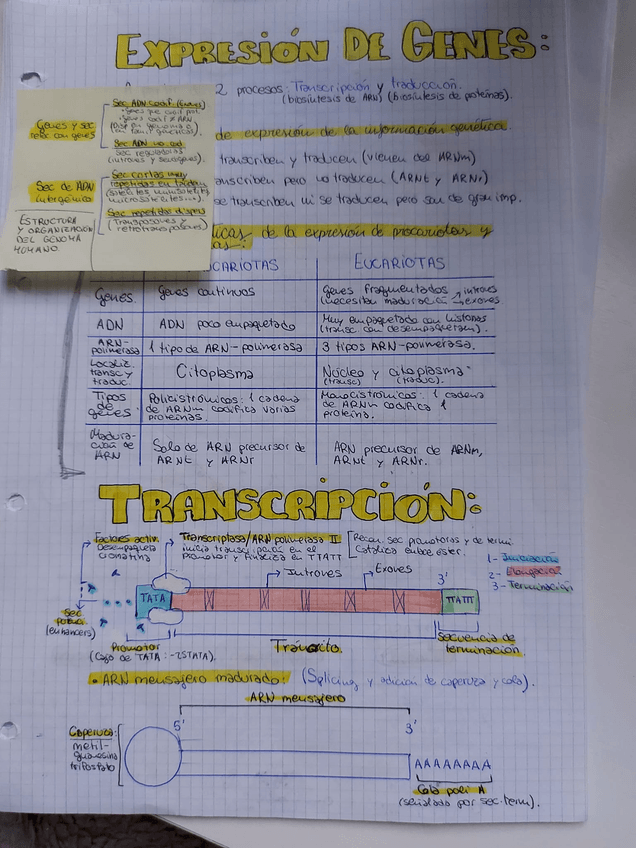 EXPRESIÓN DE GENES:
2 procesos: Transcripción y traducción.
(biosíntesis de ARN) (biosíntesis de proteínas).
Genes y sec
relac con genes
Sec ADN codif. (Exones)
Sec ADN no cod
Sec reguladoras
(intrones y seudogenes).
Sec de ADN
intergénico
Sec cortas muy
repetidas en tándem
(satélites minisatélites
microsatélites...).
Sec repetidas dispers
(Transposones y
retrotransposones)
ESTRUCTURA
Y ORGANIZACIÓN
DEL GENOMA
HUMANO.
de expresión de la información genética.
transcriben y traducen (vienen del ARNm)
anscriben pero no traducen (ARNt y ARNr)
se transcriben ni se traducen pero son de gran imp.
icas de la expresión de procariotas y
as.
CARIOTAS
EUCARIOTAS
Genes
Genes continuos
Genes fragmentados intrones
(necesitan maduración) exones
ADN
ADN poco empaquetado
Muy empaquetado con histonas
(transc con desempaquetam).
ARN-
polimerasa
1 tipo de ARN-polimerasa
3 tipos ARN-polimerasa.
Localiz.
transc y
traduc.
Citoplasma
Núcleo y citoplasma
(transc) (traduc).
Tipos
de
genes
Policistrónicos: 1 cadena
de ARNm codifica varias
proteínas.
Monocistrónicos: 1 cadena
de ARNm codifica 1
proteína.
Madura-
ción de
ARN
Solo de ARN precursor de
ARNt y ARNr
ARN precursor de ARNm,
ARNt y ARNr.
TRANSCRIPCIÓN:
Factores activ.
Desempaqueta
cromatina
Transcriptasa/ARN polimerasa II
inicia transcripción en el
promotor y finaliza en TTATT
Recon. sec promotoras y de termi.
Cataliza enlace ester.
Intrones
Exones
3'
1- Iniciación
2- Elongación
3- Terminación
TATA
TTATT
Sec
potenc.
(enhancers)
Promotor
(Caja de TATA: -25TATA).
Tránscrito.
Secuencia de
terminación
• ARN mensajero madurado: (Splicing y adición de caperuza y cola).
ARN mensajero
5'
3'
Caperuza:
metil-
guanosina
trifosfato
AAAAAAAA
Cola poli A
(señalada por sec. term).